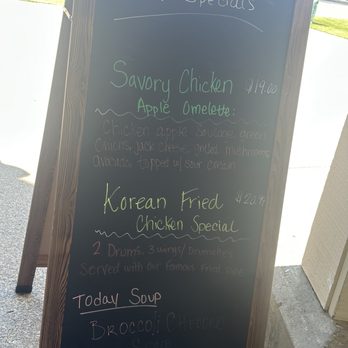 Specials
Savory Chicken $19.00
Apple Omelette:
Chicken apple Sausage, green
Onions, jack cheese, grilled mushrooms
avocado, topped w/ sour cream
Korean Fried
Chicken Special
2 Drums, 3 wings/
Served with our Famous Fried Rice
Today Soup
Broccoli Cheddar